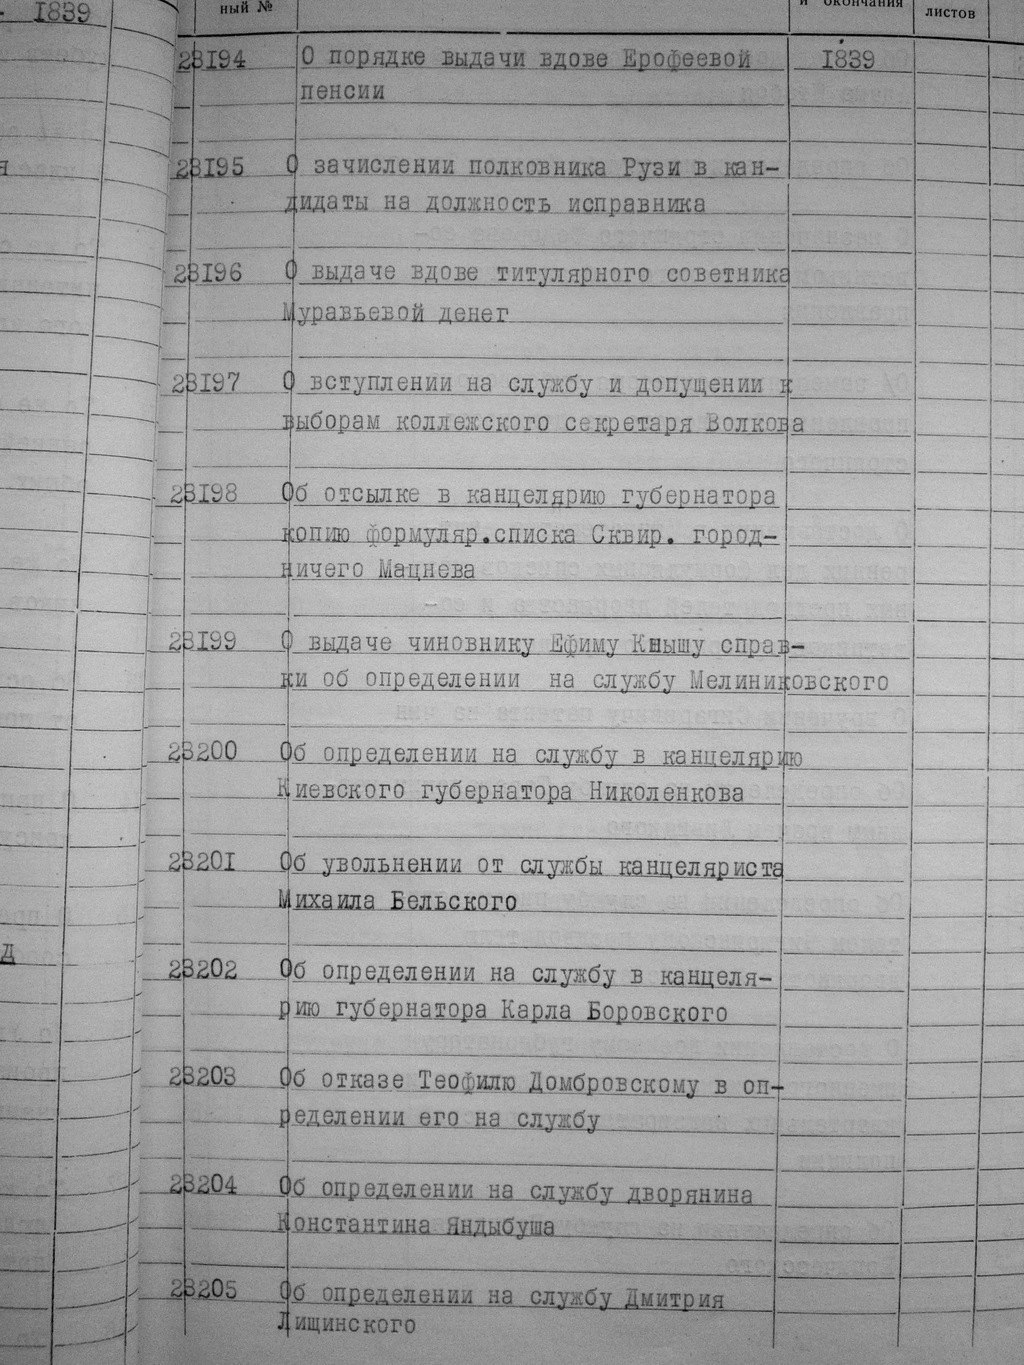 - 1839
ный №
и окончания
листов
23194 О порядке выдачи вдове Ерофеевой 1839
пенсии
23195 О зачислении полковника Рузи в кан-
дидаты на должность исправника
23196 О выдаче вдове титулярного советника
Муравьевой денег
23197 О вступлении на службу и допущении к
выборам коллежского секретаря Волкова
23198 Об отсылке в канцелярию губернатора
копию формуляр.списка Сквир. город-
ничего Мацнева
23199 О выдаче чиновнику Ефиму Кнышу справ-
ки об определении на службу Мелиниковского
23200 Об определении на службу в канцелярию
Киевского губернатора Николенкова
23201 Об увольнении от службы канцеляриста
Михаила Бельского
23202 Об определении на службу в канцеля-
рию губернатора Карла Боровского
23203 Об отказе Теофилю Домбровскому в оп-
ределении его на службу
23204 Об определении на службу дворянина
Константина Яндыбуша
23205 Об определении на службу Дмитрия
Лищинского